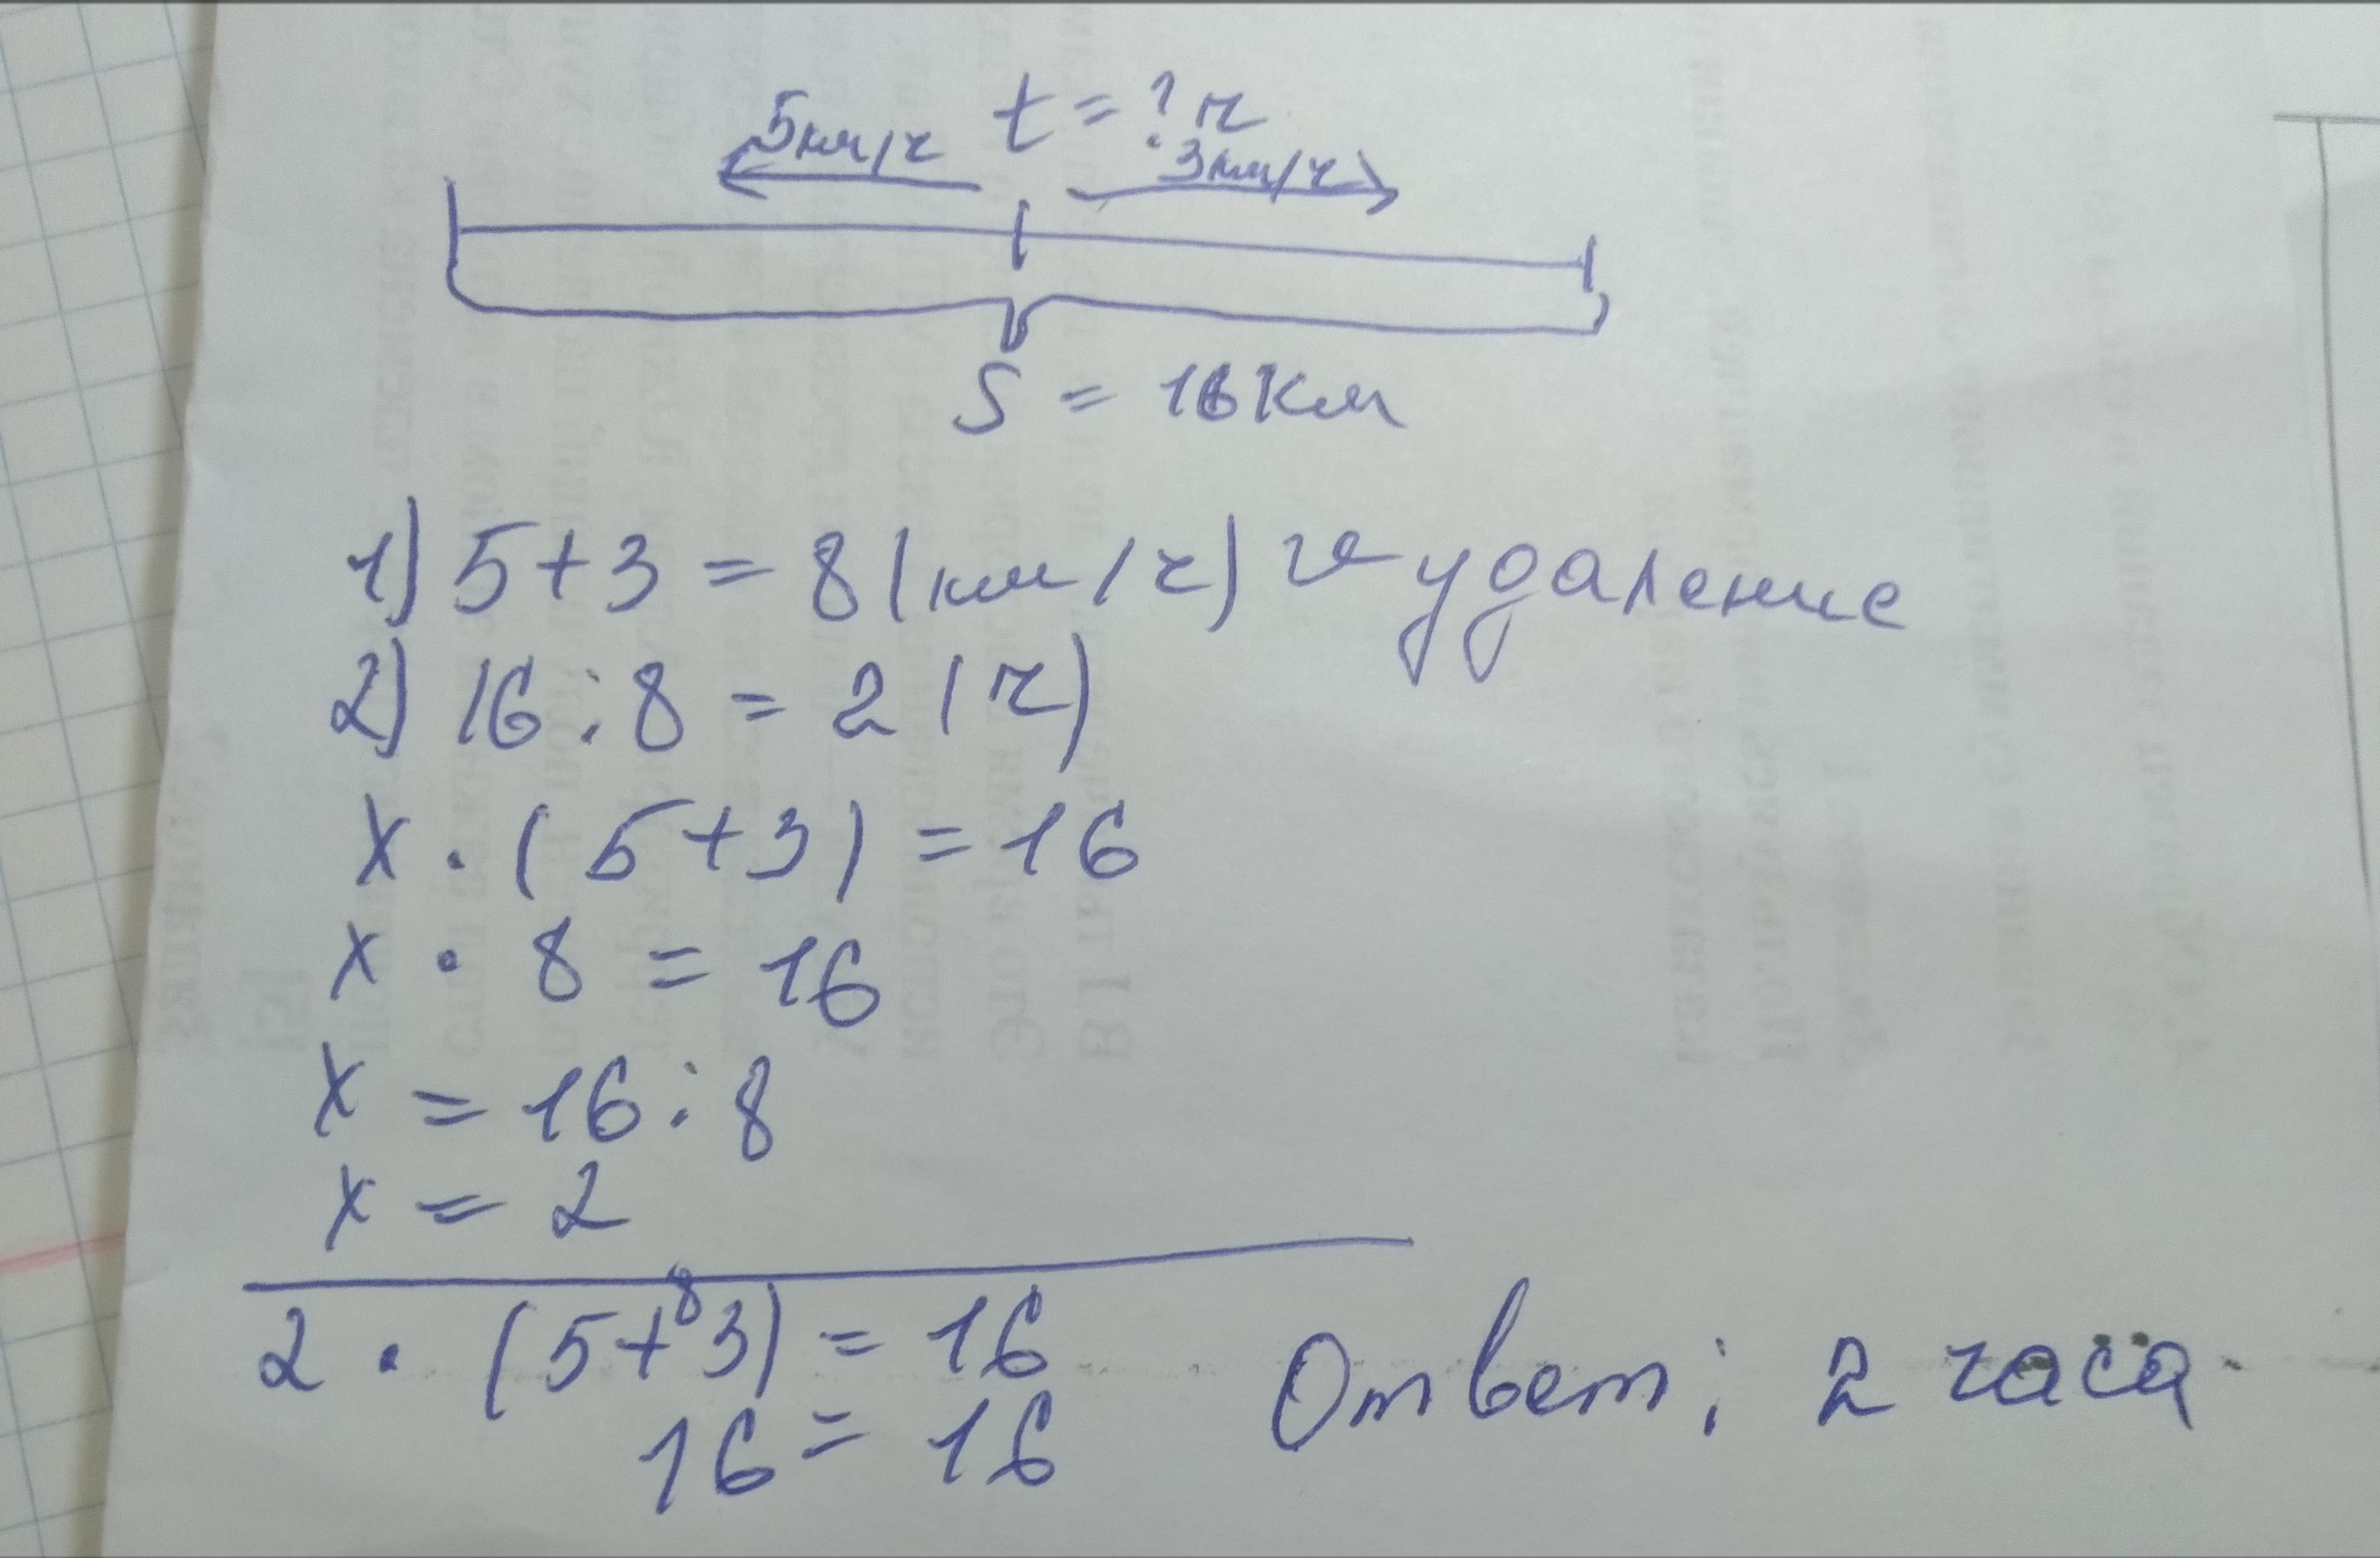 t = ? ч
5км/ч 3км/ч
S = 16 км
1) 5 + 3 = 8 (км/ч) удаление
2) 16 : 8 = 2 (ч)
x · (5 + 3) = 16
x · 8 = 16
x = 16 : 8
x = 2
8
2 · (5 + 3) = 16
16 = 16
Ответ: 2 часа.